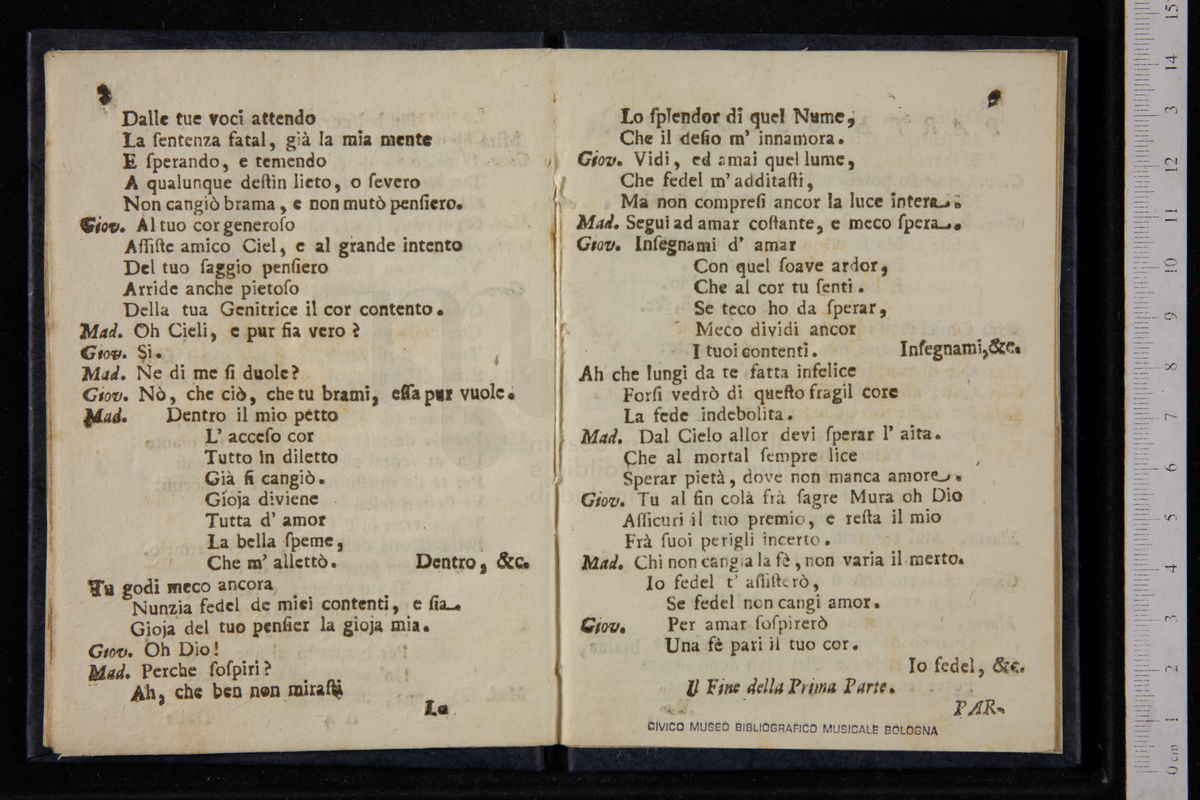 Dalle tue voci attendo
La ſentenza fatal, già la mia mente
E ſperando, e temendo
A qualunque deſtin lieto, o ſevero
Non cangiò brama, e non mutò penſiero.
Giov. Al tuo cor generoſo
Aſſiſte amico Ciel, e al grande intento
Del tuo ſaggio penſiero
Arride anche pietoſo
Della tua Genitrice il cor contento.
Mad. Oh Cieli, e pur ſia vero?
Giov. Sì.
Mad. Ne di me ſi duole?
Giov. Nò, che ciò, che tu brami, eſſa pur vuole.
Mad. Dentro il mio petto
L' acceſo cor
Tutto in diletto
Già ſi cangiò.
Gioja diviene
Tutta d' amor
La bella ſpeme,
Che m' allettò. Dentro, &c.
Tu godi meco ancora
Nunzia fedel de miei contenti, e ſia
Gioja del tuo penſier la gioja mia.
Giov. Oh Dio!
Mad. Perche ſoſpiri?
Ah, che ben non miraſti
Lo
Lo ſplendor di quel Nume,
Che il deſio m' innamora.
Giov. Vidi, ed amai quel lume,
Che fedel m' additaſti,
Ma non compreſi ancor la luce intera.
Mad. Segui ad amar coſtante, e meco ſpera.
Giov. Inſegnami d' amar
Con quel ſoave ardor,
Che al cor tu ſenti.
Se teco ho da ſperar,
Meco dividi ancor
I tuoi contenti. Inſegnami, &c.
Ah che lungi da te fatta infelice
Forſi vedrò di queſto fragil core
La fede indebolita.
Mad. Dal Cielo allor devi ſperar l' aita.
Che al mortal ſempre lice
Sperar pietà, dove non manca amore.
Giov. Tu al fin colà frà ſagre Mura oh Dio
Aſſicuri il tuo premio, e reſta il mio
Frà ſuoi perigli incerto.
Mad. Chi non cangia la fè, non varia il merto.
Io fedel t' aſſiſterò,
Se fedel non cangi amor.
Giov. Per amar ſoſpirerò
Una fè pari il tuo cor.
Io fedel, &c.
Il Fine della Prima Parte.
PAR-
CIVICO MUSEO BIBLIOGRAFICO MUSICALE BOLOGNA
0 cm 1 2 3 4 5 6 7 8 9 10 11 12 13 14 15